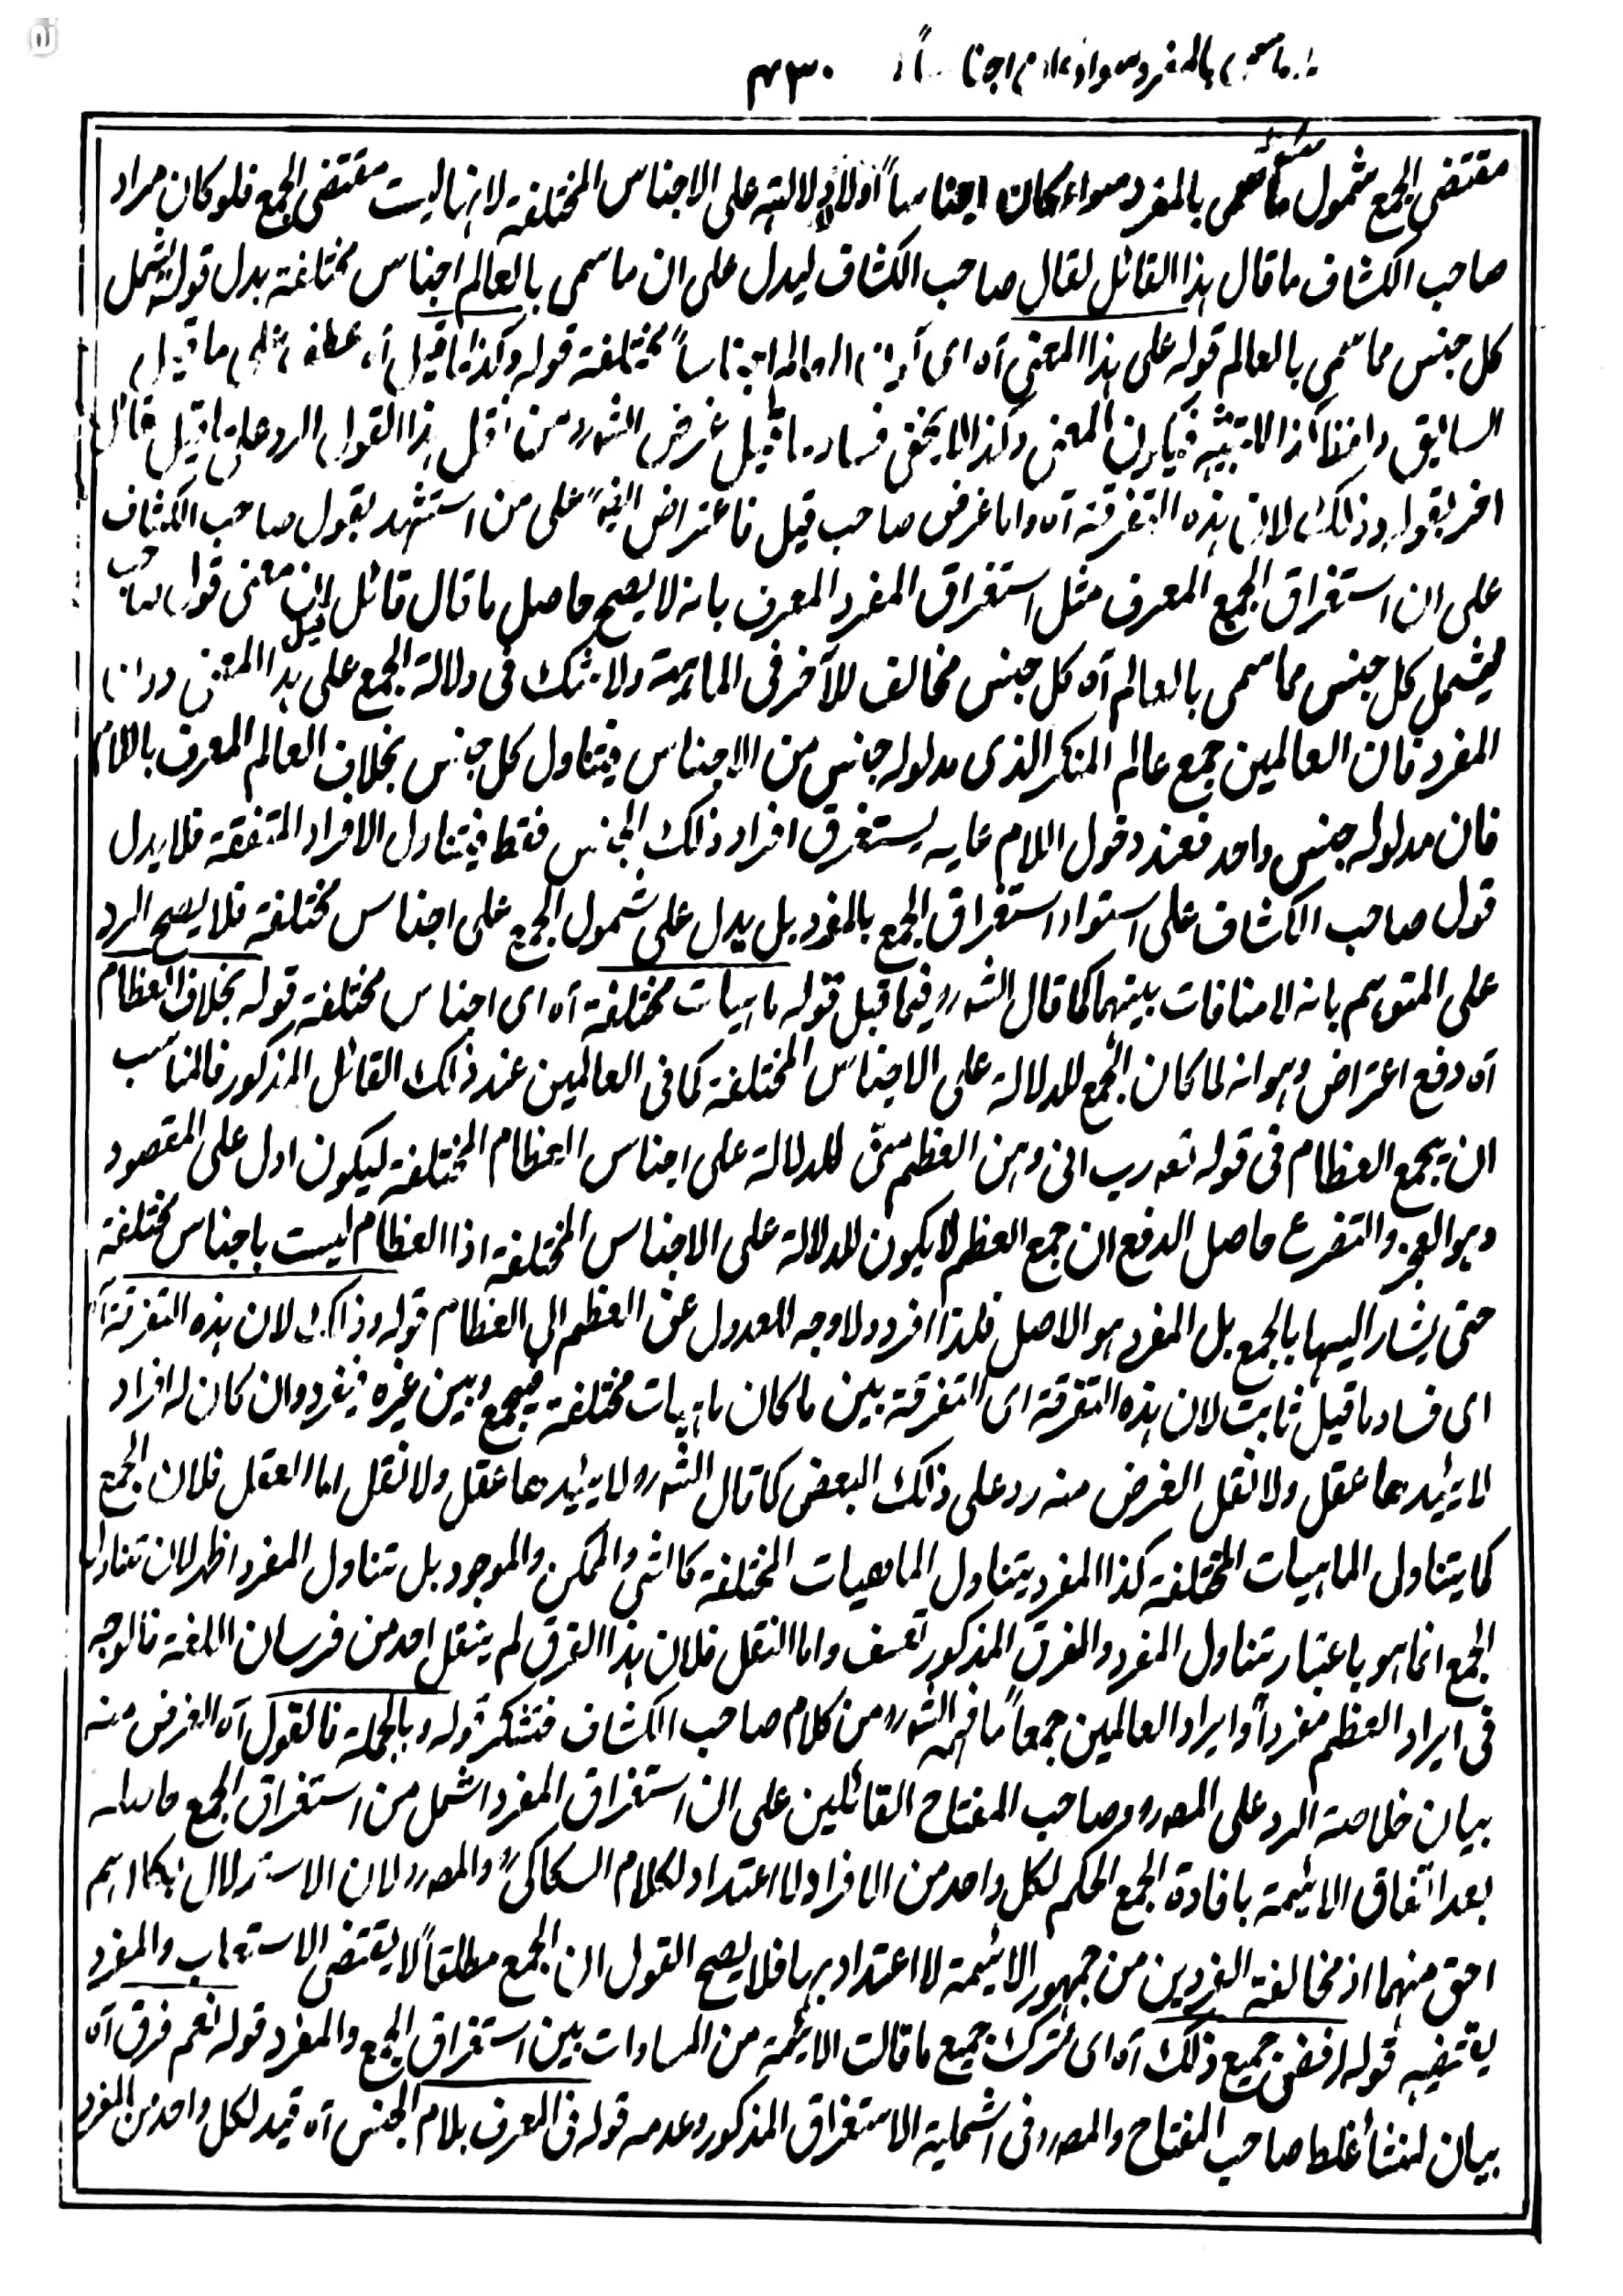 ۴۳۰
مقتضى الجمع شمول ما سمى بالمفرد سواء كان اجناساً اولا لا دلالته على الاجناس المختلفة لانها ليست مقتضى الجمع فلو كان مراد
صاحب الكشاف ما قال هذا القائل لقال صاحب الكشاف ليدل على ان ما سمى بالعالم اجناس مختلفة بدل قوله ليشمل
كل جنس مما سمى بالعالم قوله على هذا المعنى آه اى مختلفة قوله وكذا ما قيل آه عطف على ما قيل
السابق ولفظ كذا للتشبيه فيكون المعنى وكذا لا يخفى فساد ما قيل غرض الشه ره من نقل هذا القول الرد على ما قيل قائل
اخر بقوله وذلك لان هذه التفرقة آه واما غرض صاحب قيل فاعتراض ايضاً على من استشهد بقول صاحب الكشاف
على ان استغراق الجمع المعرف مثل استغراق المفرد المعرف بانه لا يصح حاصل ما قال قائل قيل ان معنى قول صاحب
ليشمل كل جنس مما سمى بالعالم آه كل جنس مخالف للآخر فى الماهية ولا شك فى دلالة الجمع على هذا المعنى دون
المفرد فان العالمين جمع عالم المنكر الذى مدلوله جنس من الاجناس فيتناول كل جنس بخلاف العالم المعرف باللام
فان مدلوله جنس واحد فعند دخول اللام عليه يستغرق افراد ذلك الجنس فقط فيتناول الافراد المتفقة فلا يدل
قول صاحب الكشاف على استواء استغراق الجمع بالمفرد بل يدل على شمول الجمع على اجناس مختلفة فلا يصح الرد
على المتوهم بانه لا منافات بينهما كما قال الشه ره فيما قبل قوله ماهيات مختلفة آه اى اجناس مختلفة قوله بخلاف العظام
آه دفع اعتراض وهو انه لما كان الجمع للدلالة على الاجناس المختلفة كما فى العالمين عند ذلك القائل المذكور فالمناسب
ان يجمع العظام فى قوله تعه رب انى وهن العظم منى للدلالة على اجناس العظام المختلفة ليكون ادل على المقصود
وهو العجز والتضرع حاصل الدفع ان جمع العظم لا يكون للدلالة على الاجناس المختلفة اذا العظام ليست باجناس مختلفة
حتى يشار اليها بالجمع بل المفرد هو الاصل فلذا افرد ولا وجه للعدول عن العظم الى العظام قوله وذلك لان هذه التفرقة آه
اى فساد ما قيل ثابت لان هذه التفرقة اى التفرقة بين ما كان ماهيات مختلفة فيجمع وبين غيره فيفرد وان كان له افراد
لا يؤيدها عقل ولا نقل الغرض منه رد على ذلك البعض كما قال الشه ره ولا يؤيدها عقل ولا نقل اما العقل فلان الجمع
كما يتناول الماهيات المختلفة كذا المفرد يتناول الماهيات المختلفة كالشئ والممكن والموجود بل تناول المفرد اظهر لان تناول
الجمع انما هو باعتبار تناول المفرد والفرق المذكور تعسف واما النقل فلان هذا الفرق لم ينقل احد من فرسان اللغة فالوجه
فى ايراد العظم مفرداً وايراد العالمين جمعاً ما فهمه الشه ره من كلام صاحب الكشاف فتشكر قوله وبالجملة فالقول آه الغرض منه
بيان خلاصة الرد على المصه ره وصاحب المفتاح القائلين على ان استغراق المفرد اشمل من استغراق الجمع حاصله
بعد اتفاق الائيمة بافادة الجمع الحكم لكل واحد من الافراد لا اعتداد لكلام السكاكىؒ والمصه ره لان الاستدلال بكلامهم
احق منهما اذ مخالفة الفردين من جمهور الائيمة لا اعتداد بها فلا يصح القول ان الجمع مطلقاً لا يقتضى الاستيعاب والمفرد
يقتضيه قوله ارفض جميع ذلك آه اى نترك جميع ما قالت الائيمة من المساوات بين استغراق الجمع والمفرد قوله نعم فرق آه
بيان لمنشأ غلط صاحب المفتاح والمصه ره فى اشملية الاستغراق المذكور وعدمه قوله فى المعرف بلام الجنس آه قيد لكل واحد من المفرد